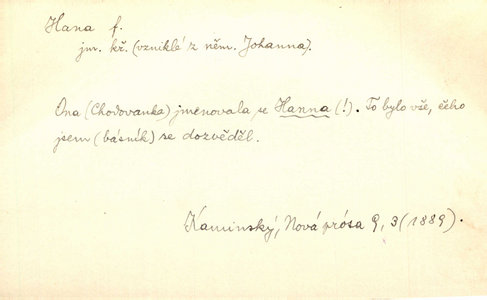 Hana f.
jm. kř. (vzniklé z něm. Johanna).
Ona (Chodovanka) jmenovala se Hanna (!). To bylo vše, čeho
jsem (básník) se dozvěděl.
Kaminský, Nová prósa 9, 3 (1889).